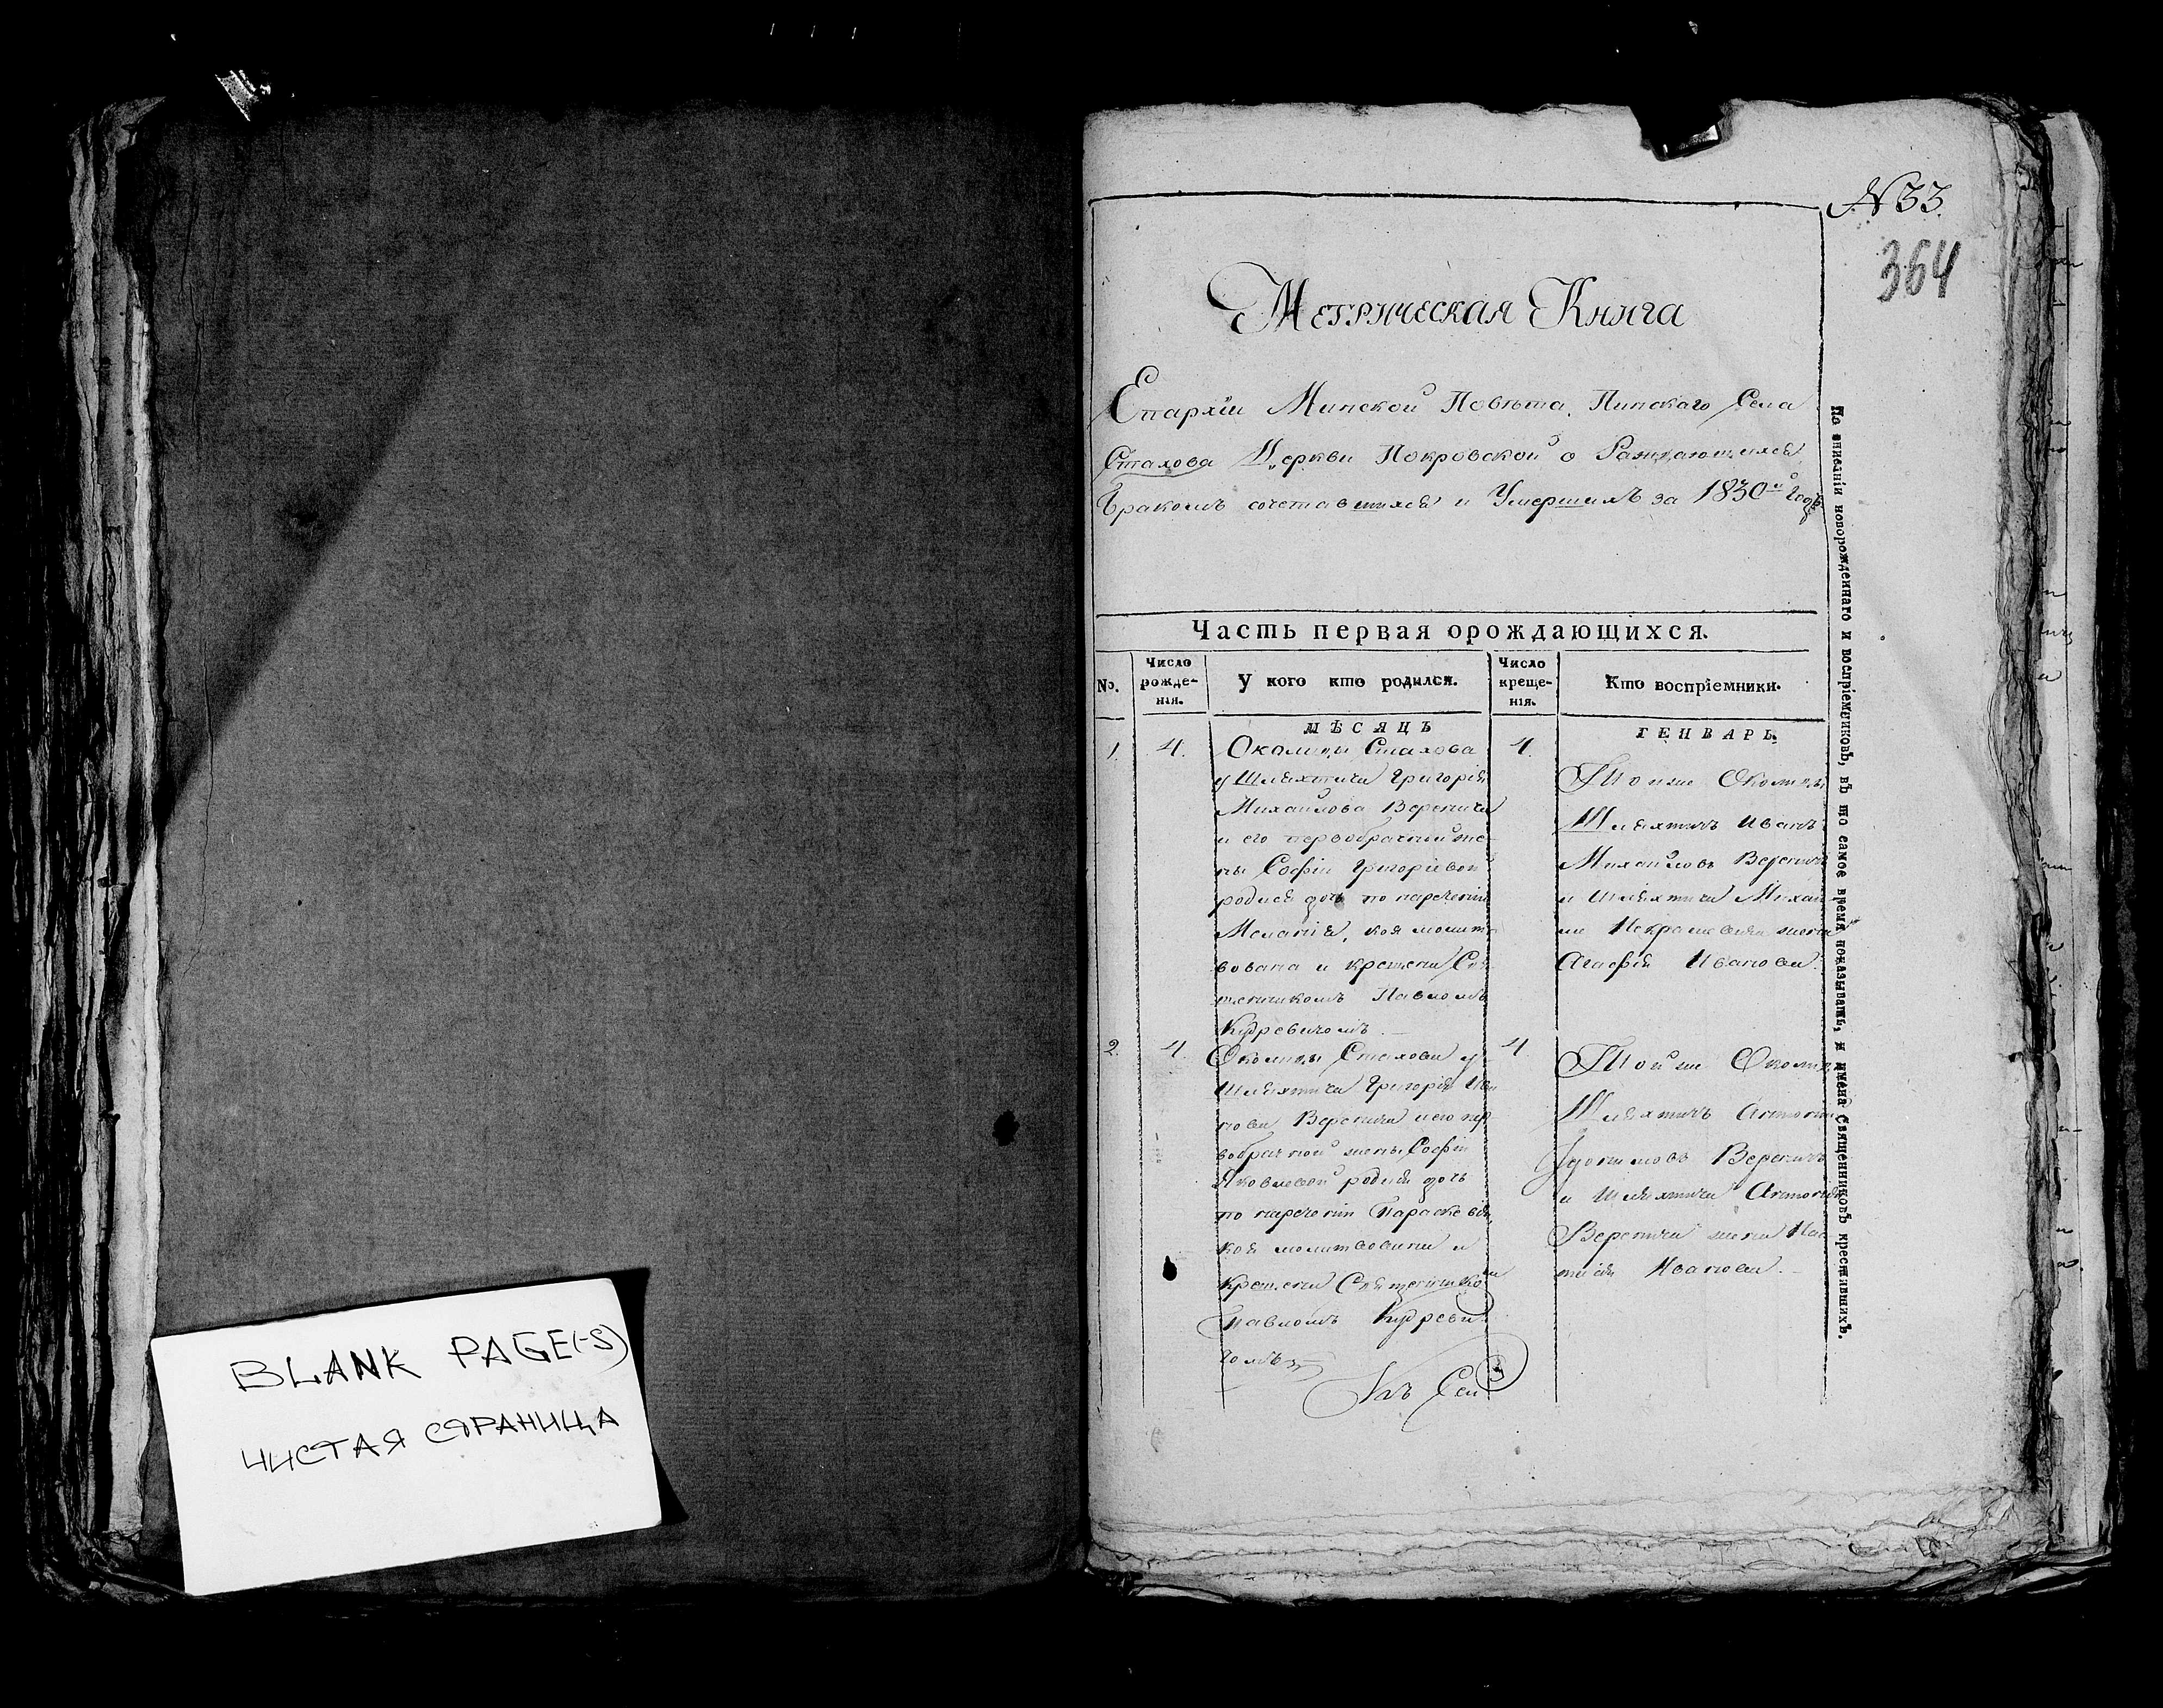 BLANK PAGE(-S)
ЧИСТАЯ СТРАНИЦА
N 33.
364
Метрическая Книга
Епархіи Минской Повѣта Пинскаго Села
Стахова Церкви Покровской о Раждающихся
Бракомъ сочетавшихся и Умершихъ за 1830й Годъ
Часть первая орождающихся.
No.
Число рожденія.
У кого кто родился.
Число крещенія.
Кто воспріемники.
МѢСЯЦЪ
ГЕНВАРЬ
1. 4.
Околицы Стахова
у Шляхтича Григорія
Михайлова Веренича
и его первобрачной же
ны Софіи Григоріевой
родися дочь по нареченіи
Меланія, коя молит
вована и крещена Свя
щенникомъ Павломъ
Кудревичомъ.
4.
Тойже Околицы
Шляхтичъ Иванъ
Михайловъ Вереничъ
и Шляхтича Михаи
жена
Агафія Иванова.
2. 4.
Околицы Стахова у
Шляхтича Григорія Ива
нова Веренича и его пер
вобрачной жены Софіи
Яковлевой родися дочь
по нареченіи Параскевія,
коя молитвована и
крещена Священником
Павломъ Кудреви
чомъ
4
Тойже Околицы
Шляхтичъ Антоній
Вереничъ
и Шляхтича Антонія
Веренича жена Нас
тасія Иванова.
По внесеніи новорожденнаго и воспріемниковъ, въ то самое время показывать, и имена Священниковъ крестившихъ.